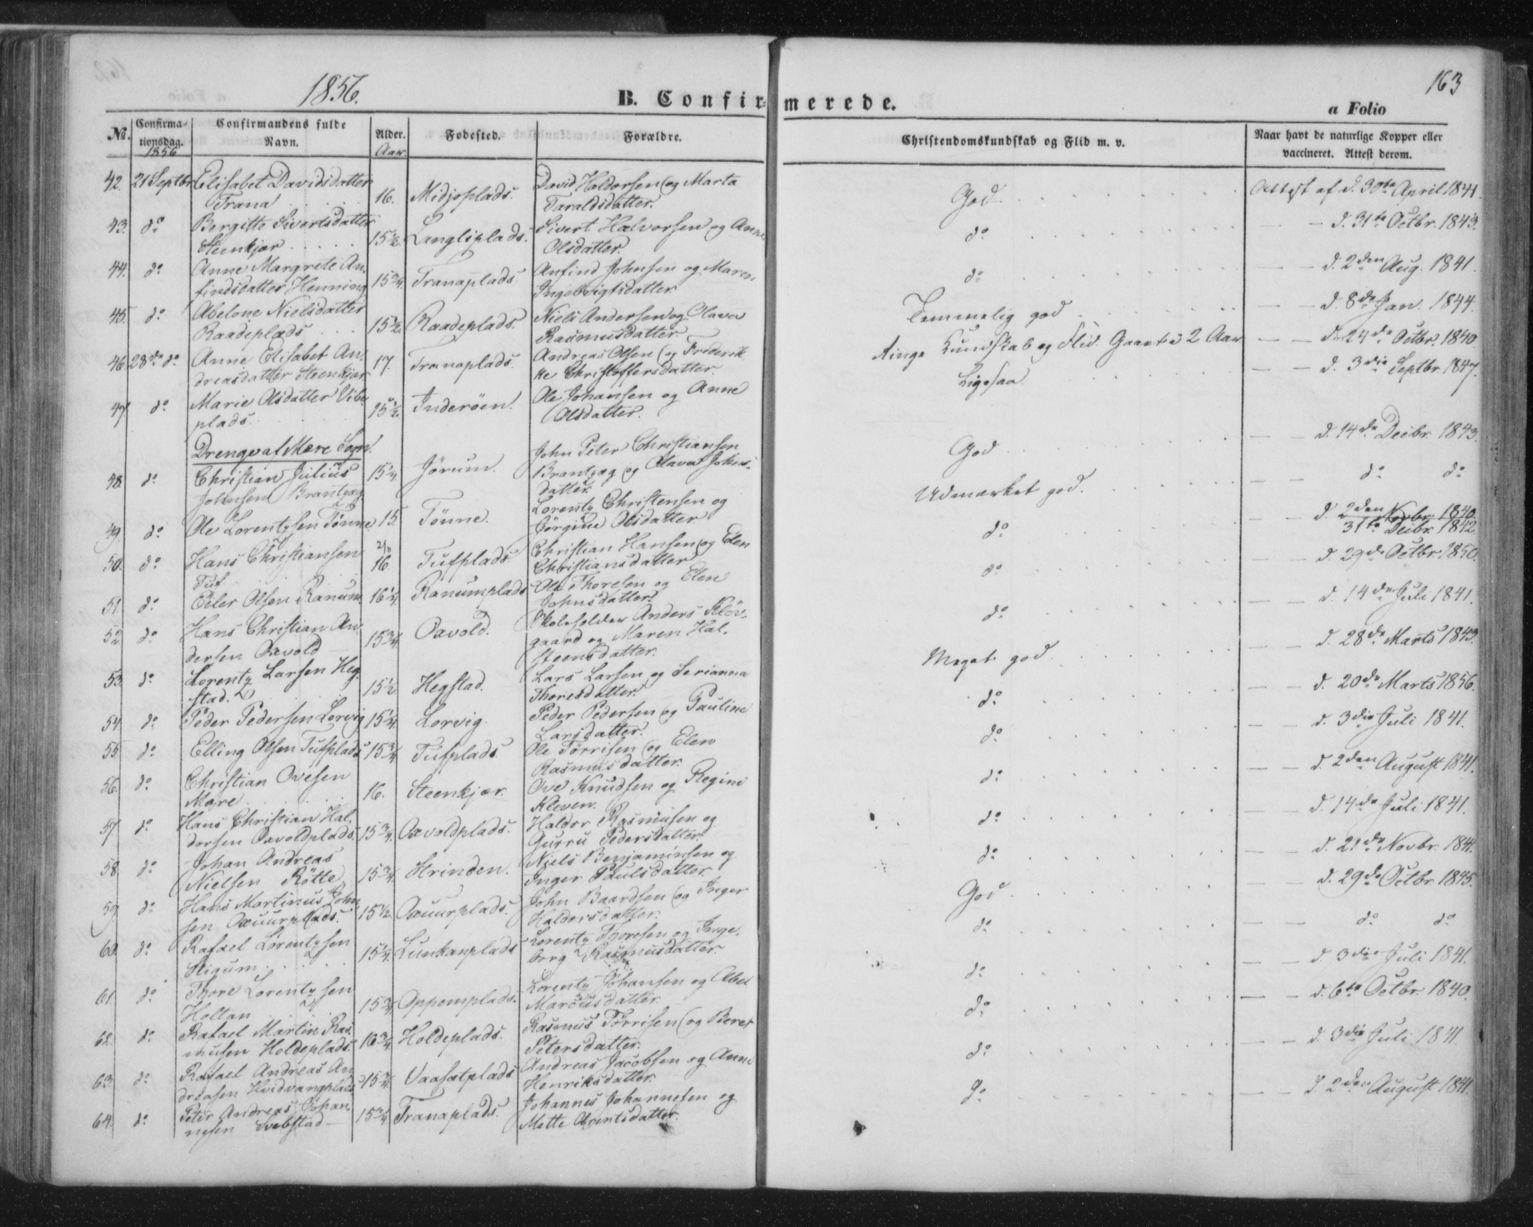 163
1856.
B. Confirmerede.
a Folio
No. Confirmationsdag. Confirmandens fulde Navn. Alder. Fødested. Forældre. Christendomskundskab og Flid m. v. Naar havt de naturlige Kopper eller vaccineret. Attest derom.
1856 Aar
42. 21 Septbr Elisabet Davidsdatter 16. Midjoplads. David Haldorsen og Marta God Attest af d. 30te April 1841.
Trana Taraldsdatter.
43. do Bergitte Sivertsdatter 15½ Langliplads. Sivert Halvorsen og Anne do d. 31te Octbr. 1843.
Steenkjær Olsdatter.
44. do Anne Margrete An- 15¾ Tranaplads Anfind Johnsen og Maren do d. 2den Aug. 1841.
findsdatter Henning Ingebrigtsdatter
45. do Abelone Nielsdatter 15½ Raadeplads. Niels Andersen og Olava Temmelig god d. 8de Jan. 1844.
Raadeplads Rasmusdatter
46. 28de do Anne Elisabet An- 17. Tranaplads. Andreas Olsen og Frederik- Ringe Kundskab og Flid. Gaaet i 2 Aar d. 24de Octbr. 1840
dreasdatter Steenkjær ke Christoffersdatter
47. do Marie Olsdatter Vibe- 15½ Inderøen. Ole Johansen og Anne Ligesaa d. 3die Septbr. 1847.
plads Olsdatter.
Drenge af Mære Sogn.
48. do Christian Julius 15¼ Jørum. John Peter Christiansen God d. 14de Decbr. 1843.
Johnsen Brantzæg Brantzæg og Olava Johns-
datter
49. do Ole Lorentzsen Tønne 15 Tønne. Lorentz Christensen og Udmærket god. do do
Olsdatter
50. do Hans Christiansen 16 Tufplads. Christian Hansen og Elen do d. 2den Novbr. 1840.
Tuf Christiansdatter 31te Decbr. 1842
51. do Eiler Olsen Ranum 16¼ Ranumplads Ole Thoresen og Elen do d. 29de Octbr. 1850.
Johnsdatter
52. do Hans Christian An- 15¾ Oavold. Skoleholder Anders Kløv- do d. 14de Juli 1841.
dersen Oavold gaard og Maren Hal-
steensdatter.
53. do Lorentz Larsen Heg- 15½ Hegstad. Lars Larsen og Serianna Meget god d. 28de Marts 1843.
stad. Thoresdatter
54. do Peder Pedersen Lorvig 15¼ Lorvig. Peder Pedersen og Pauline do d. 20de Marts 1856.
Larsdatter.
55. do Elling Olsen Tufplads 15¾ Tufplads. Ole Tørrisen og Elen do d. 3die Juli 1841.
Rasmusdatter.
56. do Christian Ovesen 16. Steenkjær. Ove Knudsen og Regine do d. 2den August 1841.
Mære Kleven.
57. do Hans Christian Hal- 15¾ Oavoldplads. Haldor Rasmusen og do d. 14de Juli 1841.
dorsen Oavoldplads Gurru Pedersdatter
58. do Johan Andreas 15¾ Strinden. Niels Benjaminsen og do d. 21de Novbr. 1841.
Nielsen Røtte Inger Paulsdatter
59. do Hans Martinus John- 15½ John Baardsen og Inger God d. 29de Octbr. 1845.
sen Haldorsdatter.
60. do Rafael Lorentzsen 15¼ Lunkanplads Lorentz Thoresen og Inge- do do do
Stigum borg Rasmusdatter
61. do Thore Lorentzsen 15¾ Oppemplads. Lorentz Johansen og Abel do d. 3die Juli 1841.
Holtan Marcusdatter.
62. do Rafael Martin Ras- 16¾ Holdeplads. Rasmus Tørrisen og Beret do d. 6te Octbr. 1840.
musen Holdeplads Petersdatter.
63. do Rafael Andreas An- 15¾ Vaasatplads Andreas Jacobsen og Anne do d. 3die Juli 1841.
dreasen Hvidvangplads Henriksdatter.
64. do Peter Andreas Johan- 15¾ Tranaplads. Johannes Johannesen og do d. 2den August 1841.
nesen Svebstad Mette Arentsdatter.